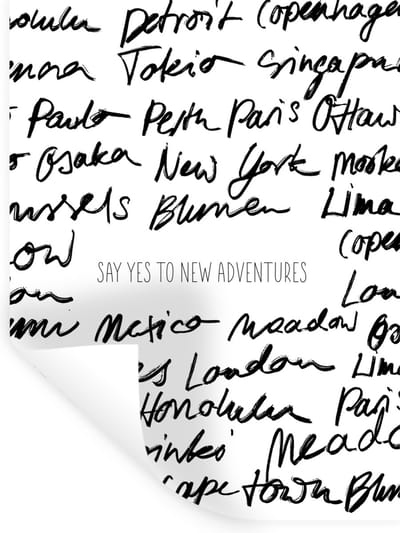 nolulu Detroit Copenhage
Tokio Singapu
Paulo Perth Paris Ottaw
Osaka New York
ussels Blumen Lima
ow
SAY YES TO NEW ADVENTURES
Lon
Mexico Meadow Os
es London Lim
Honolulu Paris
Meado
ape Town Blum